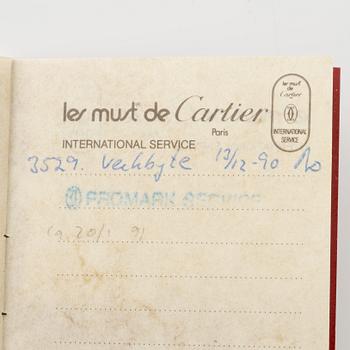 les must de Cartier
Paris
INTERNATIONAL SERVICE
les must
de
Cartier
INTERNATIONAL
SERVICE
3529. Verkbyte 13/12-90
PROMARK SERVICE
20/1 91